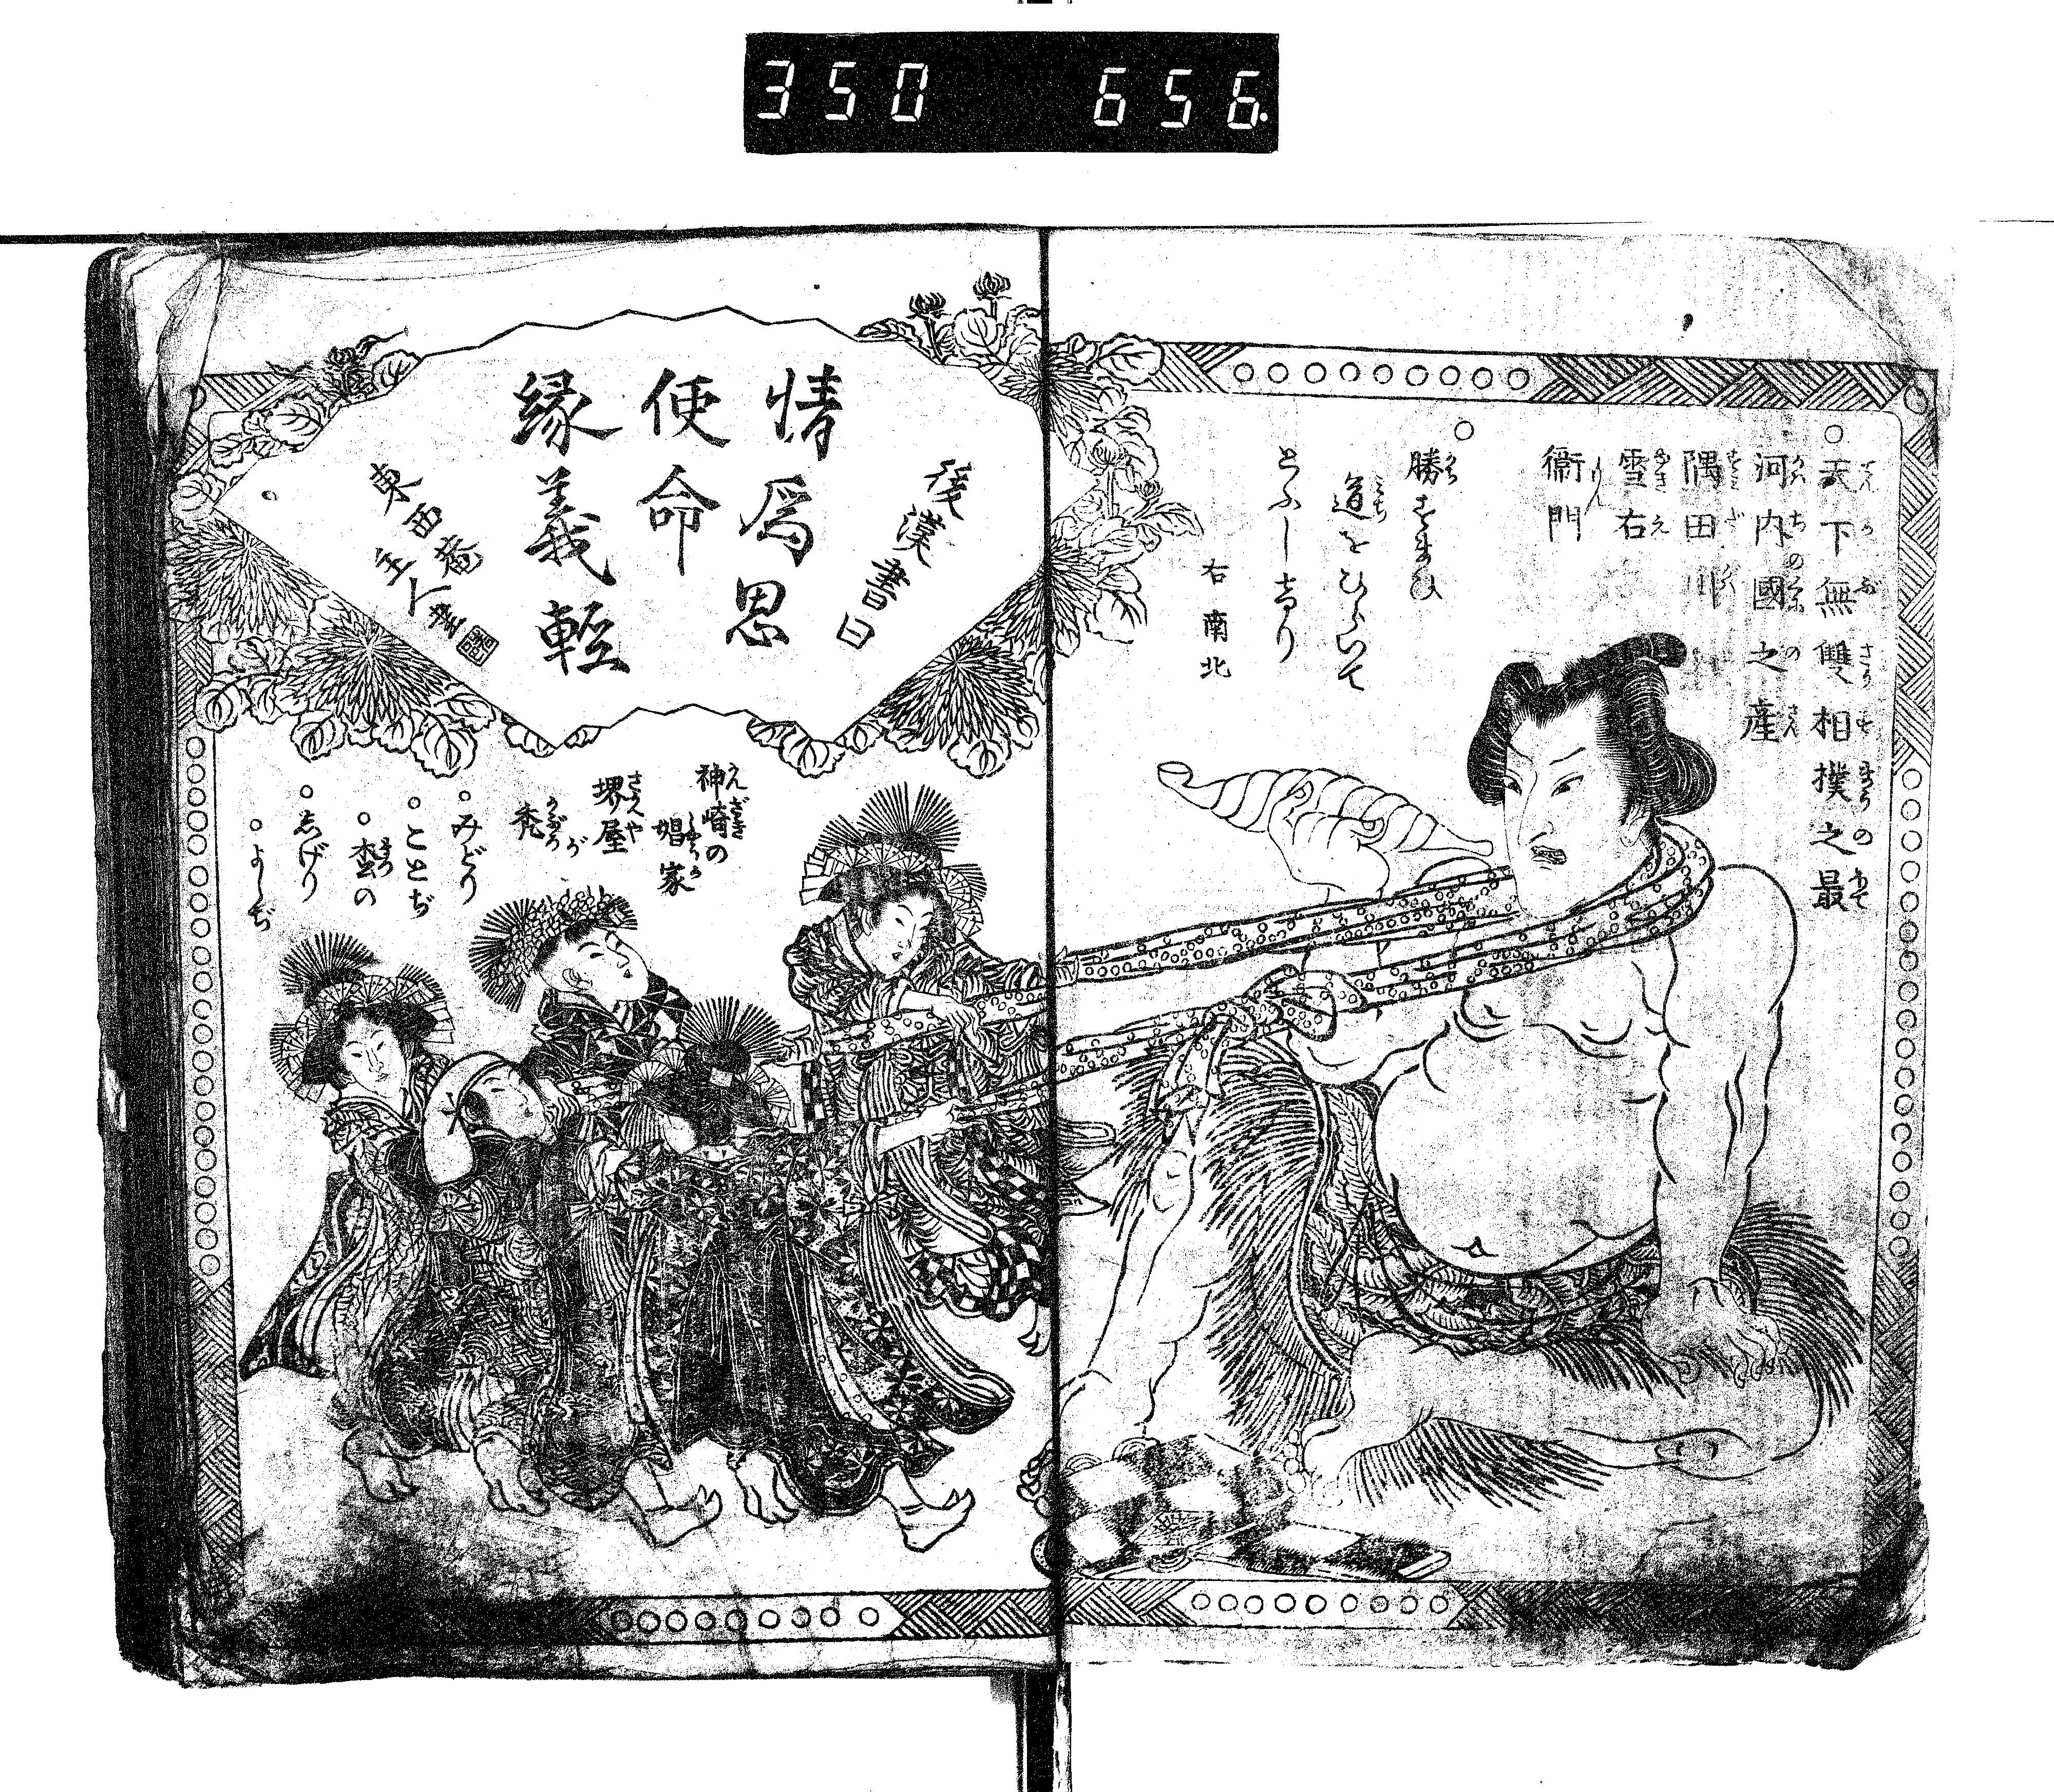 350 656
○天下無雙相撲之最
河内國之産
隅田川
雪右
衞門
○
勝すまひ
道をひらいて
とふしけり
右南北
後漢書曰
情爲恩
使命
縁義輕
東西菴
主人書
神崎の
娼家
堺屋
が
禿
○みどり
○ことぢ
○松の
○しげり
○よしぢ